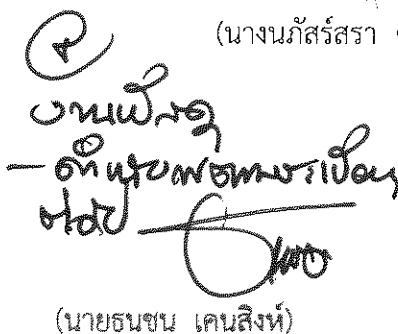 (นางนภัสร์สรา
๔
งานพัสดุ
- ดำเนินการตามระเบียบ
ต่อไป
(นายธนชน เคนสิงห์)